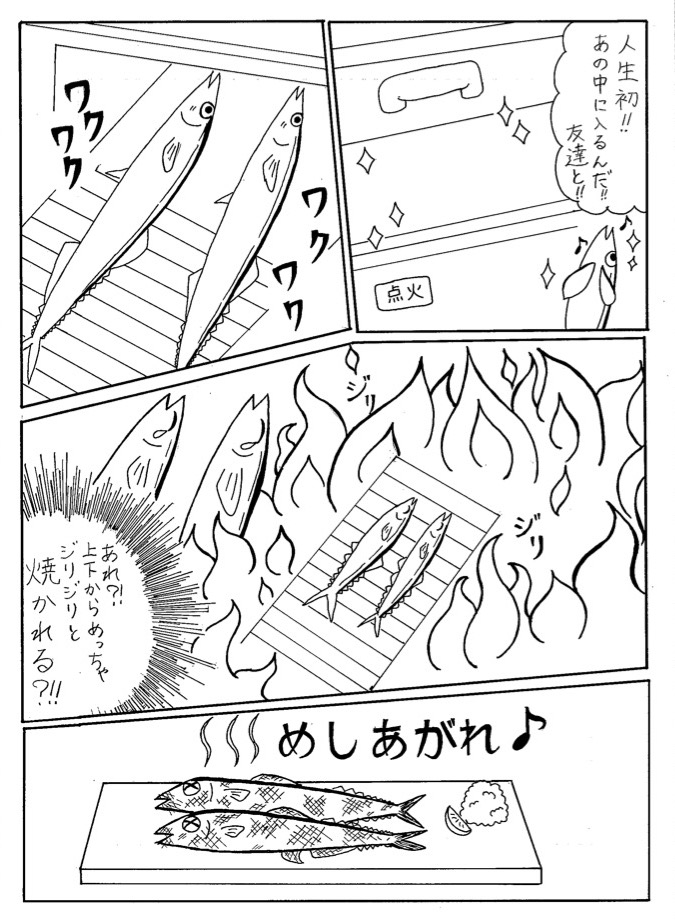 人生初!!
あの中に入るんだ!!
友達と!!
点火
ワクワク
ワクワク
ジリ
ジリ
あれ?!
上下からめっちゃ
ジリジリと
焼かれる?!!
めしあがれ♪